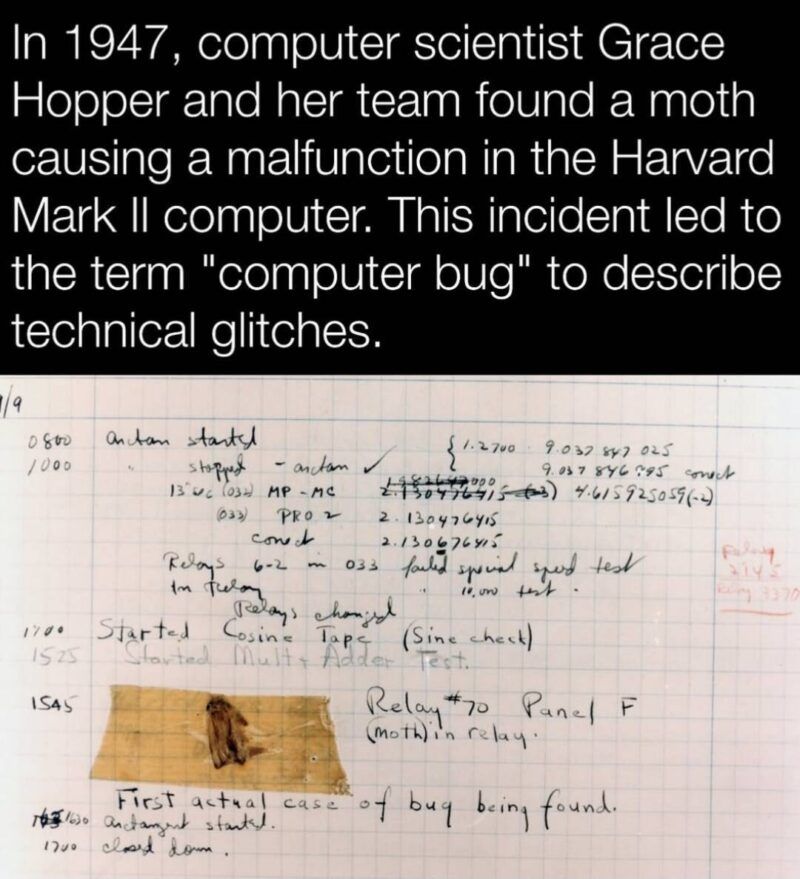 In 1947, computer scientist Grace
Hopper and her team found a moth
causing a malfunction in the Harvard
Mark II computer. This incident led to
the term "computer bug" to describe
technical glitches.
/9
0800 antan started
1000 " stopped - antan ✓
{ 1.2700 9.037 847 025
9.037 846 995 conect
13" uc (032) MP - MC 4.615925059(-2)
(033) PRO 2 2.130476415
conect 2.130676415
Relays 6-2 in 033 failed special speed test
in relay " 10,000 test .
Relays changed
Started Cosine Tape (Sine check)
1525 Started Mult + Adder Test.
Relay
1545 Relay #70 Panel F
(moth) in relay.
First actual case of bug being found.
1630 antangent started.
1700 closed down .